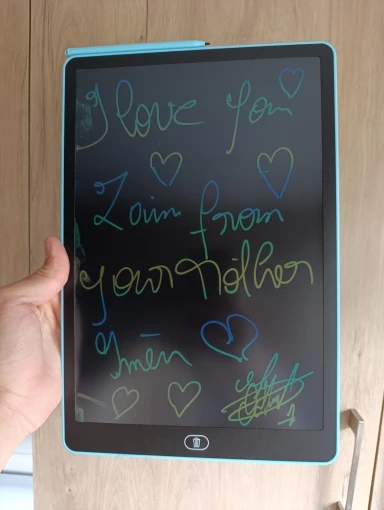 I love you
Zain from
your Mother
Imēn